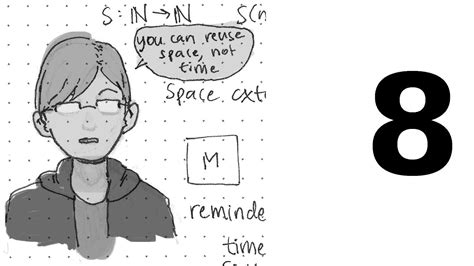 S: ℕ→ℕ S(n
you can reuse
space, not
time
Space ext
M
reminde
time
8